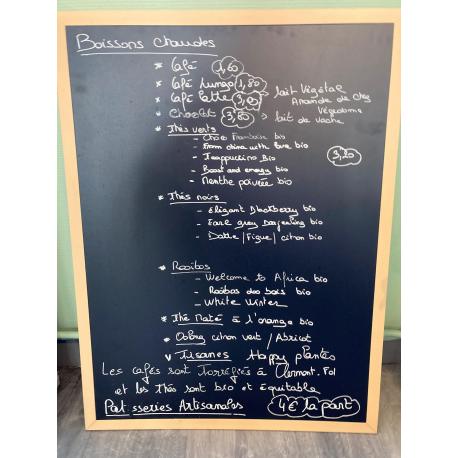 Boissons chaudes
* Café 1,60
* Café Lungo 1,80
* Café Latte 3,00
lait Végétal
Amande de chez
Végédome
* Chocolat 3,80
↳ lait de vache
* Thés verts
- Choco Framboise bio
- From china with love bio
- Teappuccino Bio
3,20
- Boost and energy bio
- Menthe poivrée bio
* Thés noirs
- Elégant Blackberry bio
- Earl grey Darjeeling bio
- Datte/Figue/citron bio
* Rooibos
- Welcome to Africa bio
- Rooibos des bois bio
- White Winter
* Thé Maté à l'orange bio
* Oolong citron vert / Abricot
v Tisanes Happy plantes
Les cafés sont Torréfiés à Clermont. Fd
et les Thés sont bio et équitable
Patisseries Artisanales 4€ la part